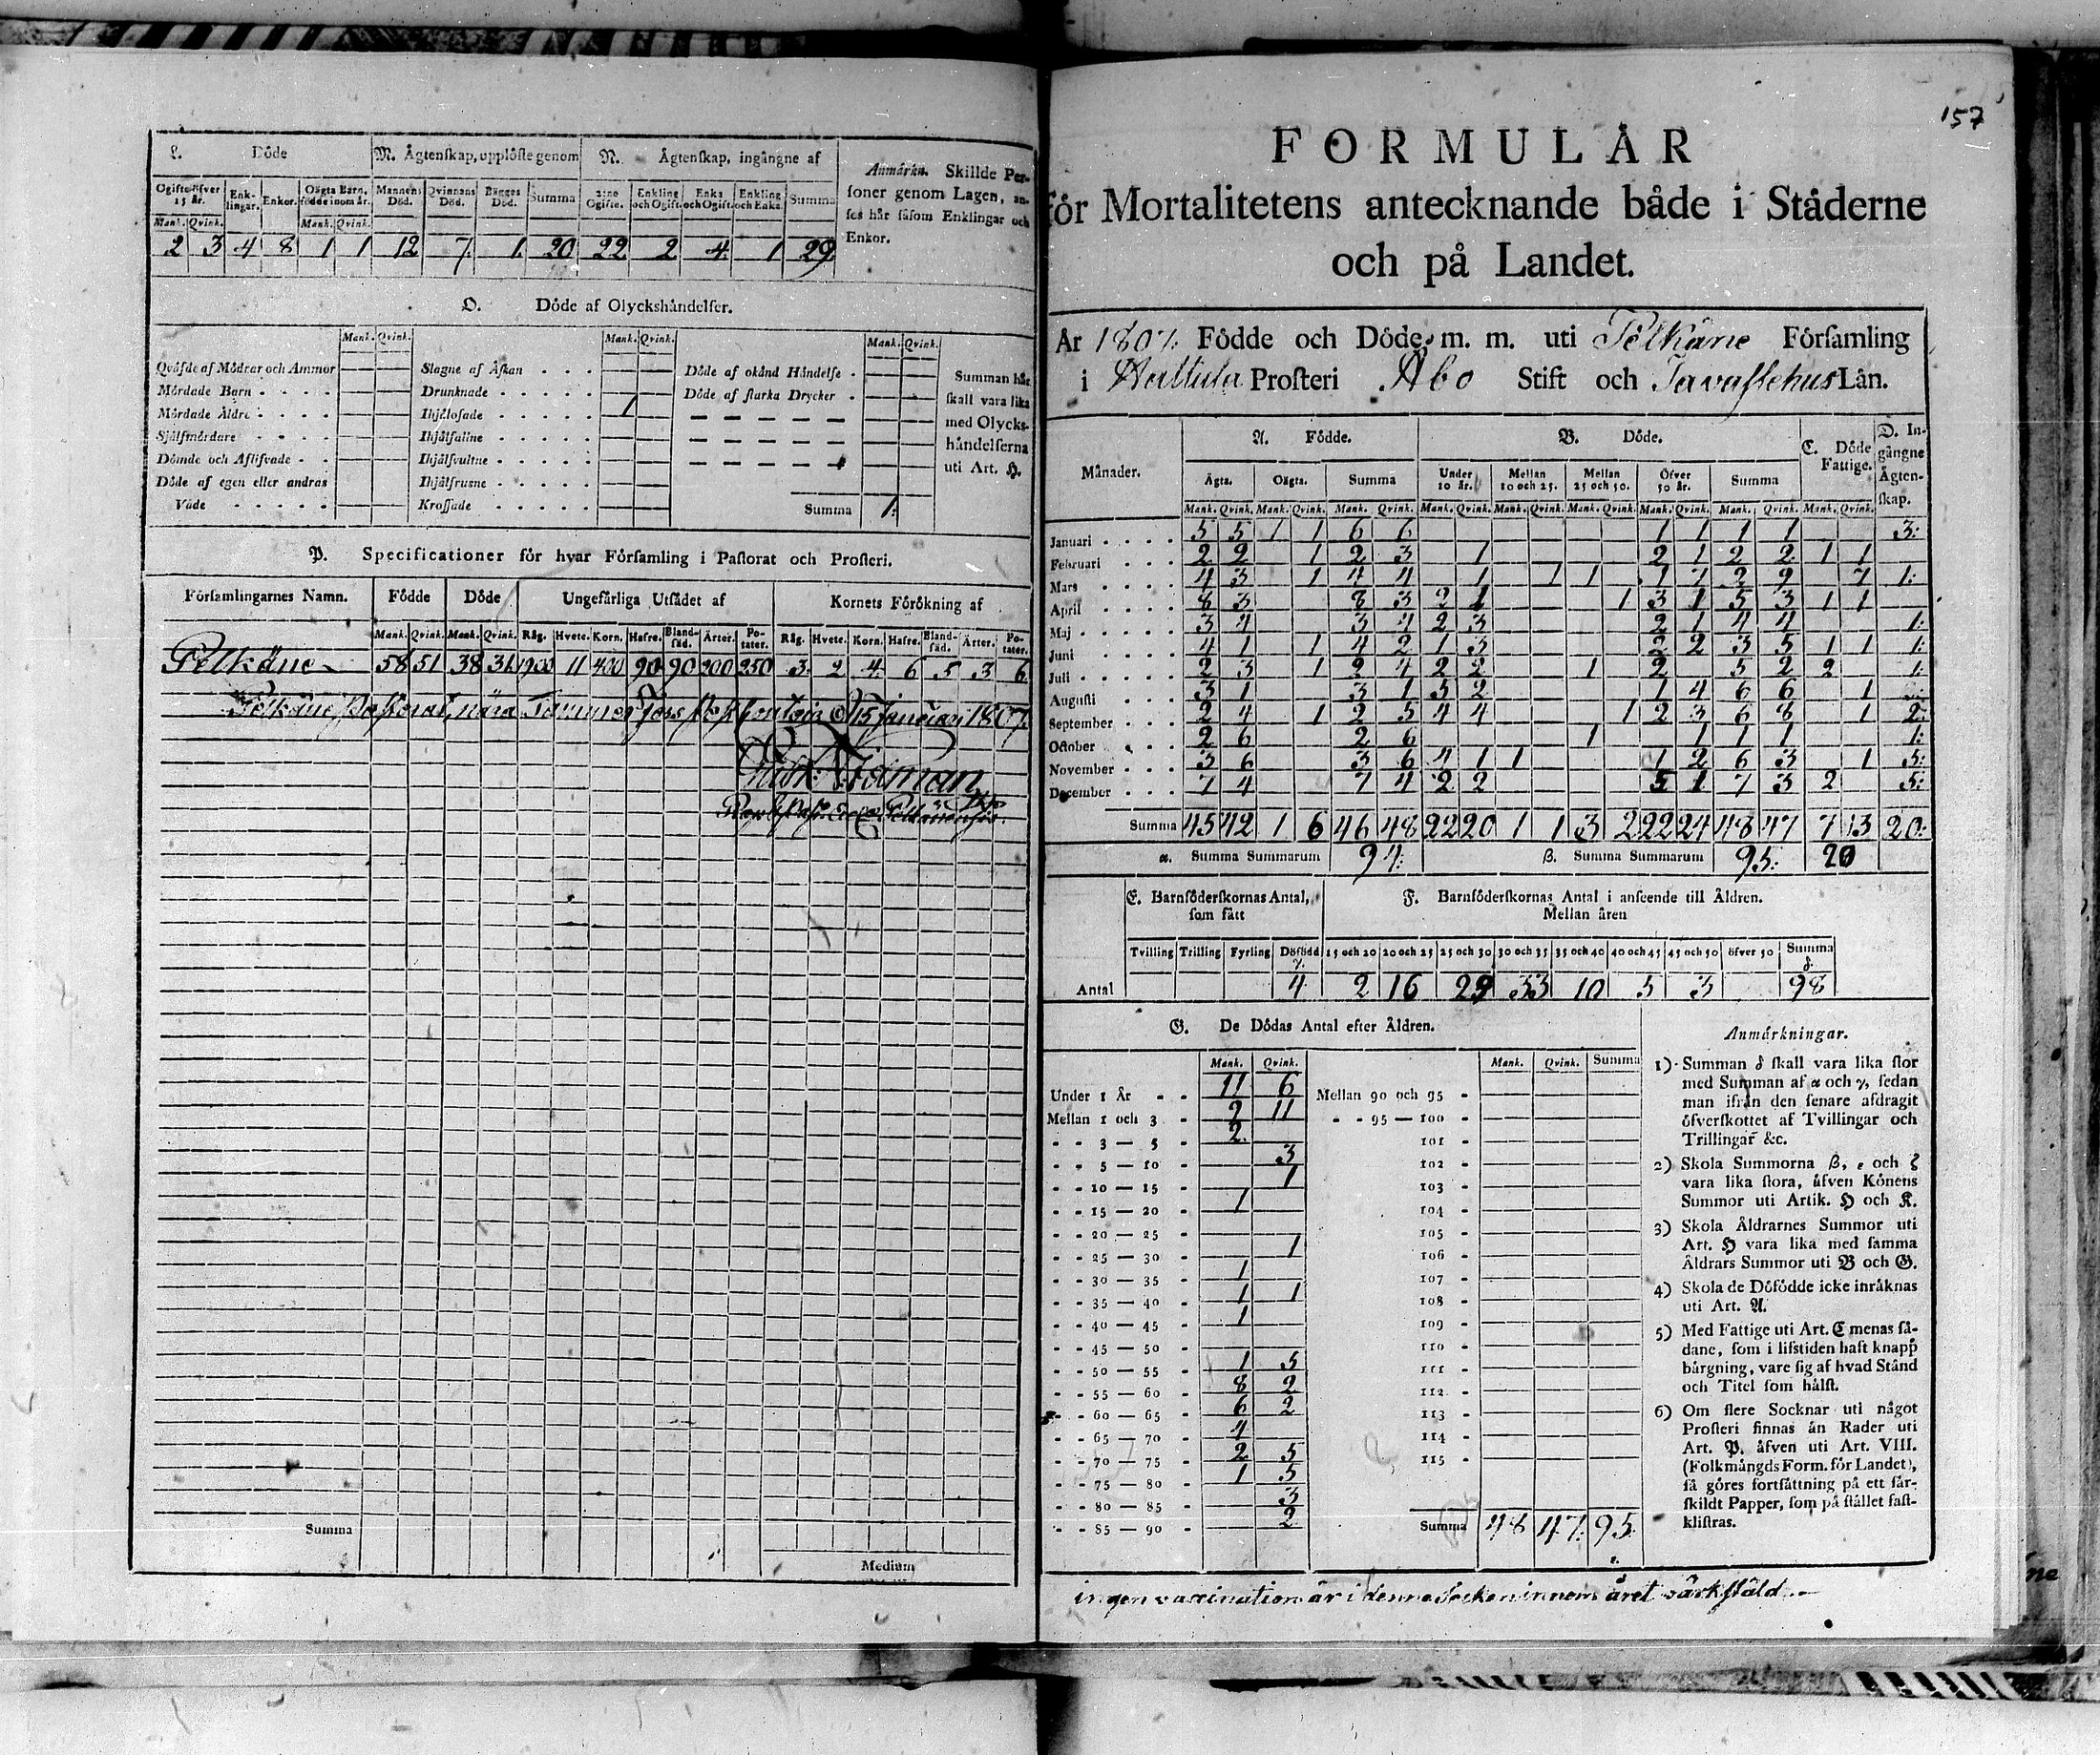 L. Döde
M. Ägtenskap, upplöste genom
N. Ägtenskap, ingångne af
Anmärkn. Skillde Personer
soner genom Lagen, an-
ses här såsom Enklingar och
Enkor.
Ogifte öfver 15 år. Enk-lingar. Enkor. Oägta Barn, födde inom år. Mannens Död. Qvinnans Död. Bägges Död. Summa 2:ne Ogifte. Enkling och Ogift. Enka och Ogift. Enkling och Enka. Summa
Mank. Qvink. Mank. Qvink.
2 3 4 8 1 1 12 7. 1. 20 22 2 4. 1 29
O. Döde af Olyckshändelser.
Mank. Qvink. Mank. Qvink. Mank. Qvink.
Qväfde af Mödrar och Ammor Slagne af Åskan . . . Döde af okänd Händelse .
Mördade Barn . . . . Drunknade . . . . . 1 Döde af starka Drycker .
Mördade Äldre . . . . Ihjälosade . . . . .
Självmördare . . . . Ihjälfallne . . . . .
Dömde och Aflifvade - - Ihjälsvultne . . . . .
Döde af egen eller andras Ihjälfrusne . . . . .
Våde . . . . . Krossade . . . . . Summa 1.
Summan här
skall vara lika
med Olycks-
händelserna
uti Art. H.
P. Specificationer för hvar Församling i Pastorat och Prosteri.
Församlingarnes Namn. Födde Döde Ungefärliga Utsädet af Kornets Förökning af
Mank. Qvink. Mank. Qvink. Råg. Hvete. Korn. Hafre. Bland-säd. Ärter. Po-tater. Råg. Hvete. Korn. Hafre. Bland-säd. Ärter. Po-tater.
Pelkäne 58 51 38 31 1900 11 400 90 90 200 250 3. 2 4. 6 5 3 6.
Pelkäne Pastorat, nära 15 Januari 1807.
Summa
Medium
157
FORMULÄR
för Mortalitetens antecknande både i Städerne
och på Landet.
År 1807. Födde och Döde m. m. uti Pelkäne Församling
i Hattula Prosteri Åbo Stift och Tavastehus Län.
Månader. A. Födde. B. Döde. C. Döde Fattige. D. In-gångne Ägten-skap.
Ägta. Oägta. Summa Under 10 år. Mellan 10 och 25. Mellan 25 och 50. Öfver 50 år. Summa
Mank. Qvink. Mank. Qvink. Mank. Qvink. Mank. Qvink. Mank. Qvink. Mank. Qvink. Mank. Qvink. Mank. Qvink. Mank. Qvink.
Januari . . . . 5 5 1 1 6 6 1 1 1 1 3:
Februari . . . 2 2 1 2 3 1 2 1 2 2 1 1
Mars . . . . 4 3 1 4 4 1 1 1 1 7 2 9 7 1:
April . . . . 8 3 8 3 2 1 1 3 1 5 3 1 1
Maj . . . . . 3 4 3 4 2 3 2 1 4 4 1:
Juni . . . . 4 1 1 4 2 1 3 2 2 3 5 1 1 1:
Juli . . . . . 2 3 1 2 4 2 2 1 2 5 2 2 1:
Augusti . . . 3 1 3 1 5 2 1 4 6 6 1
September . . . 2 4 1 2 5 4 4 1 2 3 6 8 1 2:
October . . . 2 6 2 6 1 1 1 1 1:
November . . . 3 6 3 6 4 1 1 1 2 6 3 1 5:
December . . . 7 4 7 4 2 2 5 1 7 3 2 5:
Summa 45 42 1 6 46 48 22 20 1 1 3 2 22 24 48 47 7 13 20:
α. Summa Summarum 94: β. Summa Summarum 95: 20
E. Barnföderskornas Antal, som fått F. Barnföderskornas Antal i anseende till Åldren. Mellan åren
Tvilling Trilling Fyrling Döfödd γ. 15 och 20 20 och 25 25 och 30 30 och 35 35 och 40 40 och 45 45 och 50 öfver 50 Summa δ.
Antal 4 2 16 29 33 10 5 3 98
G. De Dödas Antal efter Åldren.
Mank. Qvink. Mank. Qvink. Summa
Under 1 År - - 11 6 Mellan 90 och 95 -
Mellan 1 och 3 - 9 11 - - 95 — 100 -
- - 3 — 5 - 2. 101 -
- - 5 — 10 - 3 102 -
- - 10 — 15 - 1 103 -
- - 15 — 20 - 1 104 -
- - 20 — 25 - 105 -
- - 25 — 30 - 1 106 -
- - 30 — 35 - 1 107 -
- - 35 — 40 - 1 1 108 -
- - 40 — 45 - 1 109 -
- - 45 — 50 - 110 -
- - 50 — 55 - 1 5 111 -
- - 55 — 60 - 8 2 112 -
- - 60 — 65 - 6 2 113 -
- - 65 — 70 - 4 114 -
- - 70 — 75 - 2 5 115 -
- - 75 — 80 - 1 5
- - 80 — 85 - 3
- - 85 — 90 - 2 Summa 48 47. 95.
ε.
Anmärkningar.
1) Summan δ skall vara lika stor
med Summan af α och γ, sedan
man ifrån den senare afdragit
öfverskottet af Tvillingar och
Trillingar &c.
2) Skola Summorna β, ε och ζ
vara lika stora, äfven Könens
Summor uti Artik. H och K.
3) Skola Åldrarnes Summor uti
Art. H vara lika med samma
Åldrars Summor uti B och G.
4) Skola de Döfödde icke inräknas
uti Art. A.
5) Med Fattige uti Art. C menas så-
dane, som i lifstiden haft knapp
bärgning, vare sig af hvad Stånd
och Titel som hälst.
6) Om flere Socknar uti något
Prosteri finnas än Rader uti
Art. P. äfven uti Art. VIII.
(Folkmängds Form. för Landet),
så göres fortsättning på ett sär-
skildt Papper, som på stället fast-
klistras.
ingen vaccination är i denna Socken innom året värkstäld.